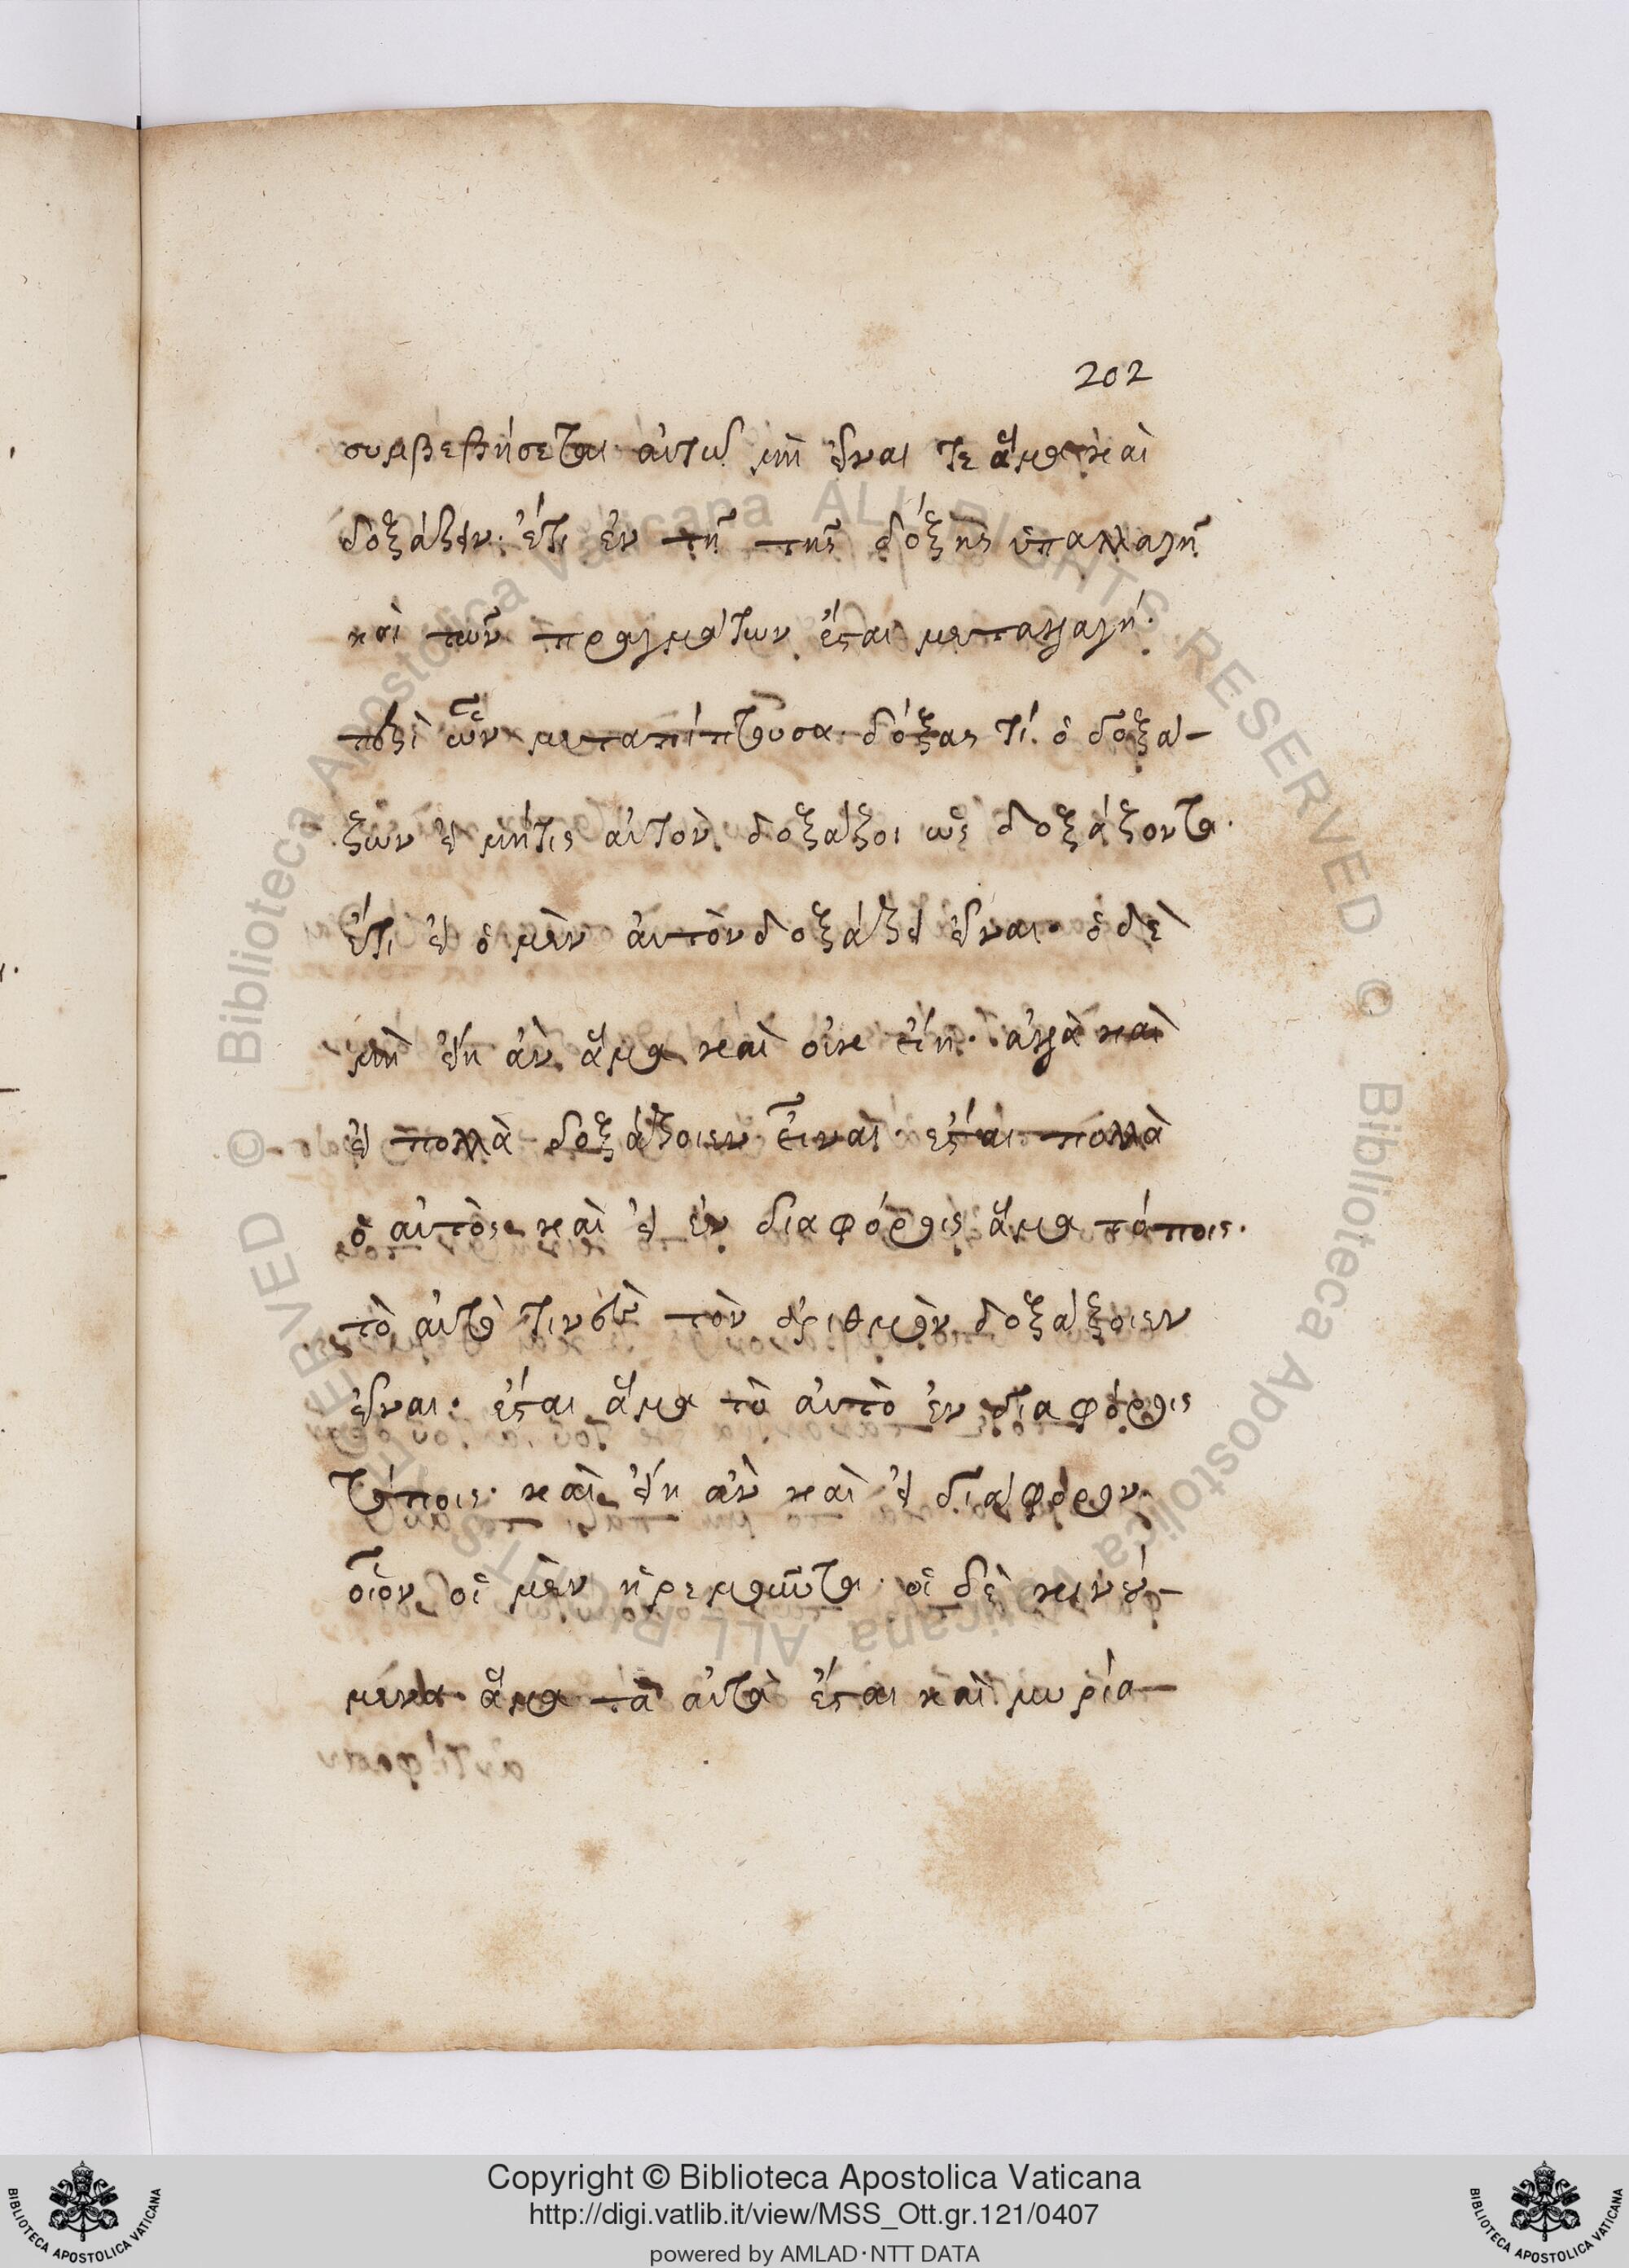 202
συμβεβήσεται αὐτῶ μὴ εἶναι τε ἅμα καὶ
δοξάζειν· ἔτι ἐν τῇ τῆς δόξης ὑπαλλαγῇ
καὶ τῶν πραγμάτων ἔσται μεταλλαγή·
περὶ ὧν μεταπίπτουσα δόξας τί ὁ δοξά-
ζων εἰ μήτις αὐτὸν δοξάζοι ὡς δοξάζοντα·
ἔτι εἰ ὁ μὲν αὐτὸν δοξάζει εἶναι· ὁ δὲ
μὴ εἴη ἂν ἅμα καὶ οὐκ εἴη· ἀλλὰ καὶ
εἰ πολλὰ δοξάζοιεν εἶναι· ἔσται πολλὰ
ὁ αὐτὸς καὶ εἰ ἐν διαφόροις ἅμα τόποις·
τὸ αὐτὸ τὸν ἀριθμὸν δοξάζοιεν
εἶναι· ἔσται ἅμα τὸ αὐτὸ ἐν διαφόροις
τόποις· καὶ εἴη ἂν καὶ εἰ διάφορον
οἷον οἱ μὲν ἠρεμοῦντα· οἱ δὲ κινού-
μενα ἅμα τὰ αὐτὰ ἔσται καὶ μυρία-
Copyright © Biblioteca Apostolica Vaticana
http://digi.vatlib.it/view/MSS_Ott.gr.121/0407
powered by AMLAD·NTT DATA
BIBLIOTECA APOSTOLICA VATICANA
BIBLIOTECA APOSTOLICA VATICANA